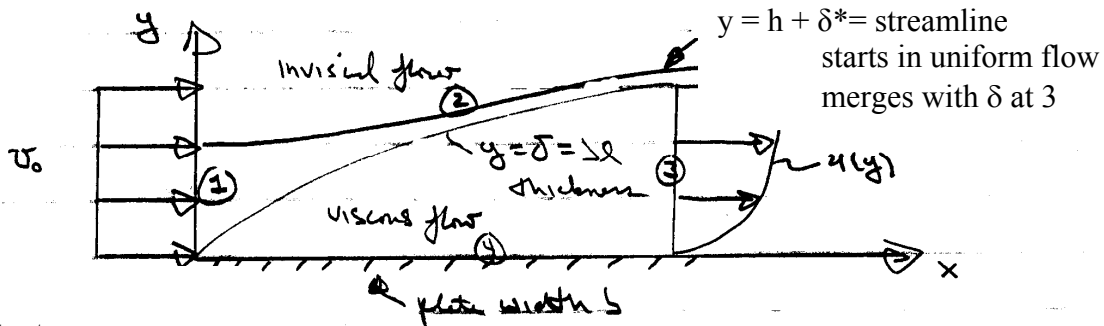 y
y = h + δ*= streamline
starts in uniform flow
merges with δ at 3
inviscid flow
2
v₀
1
y = δ = Sl
thickness
3
u(y)
viscous flow
4
x
plate width b